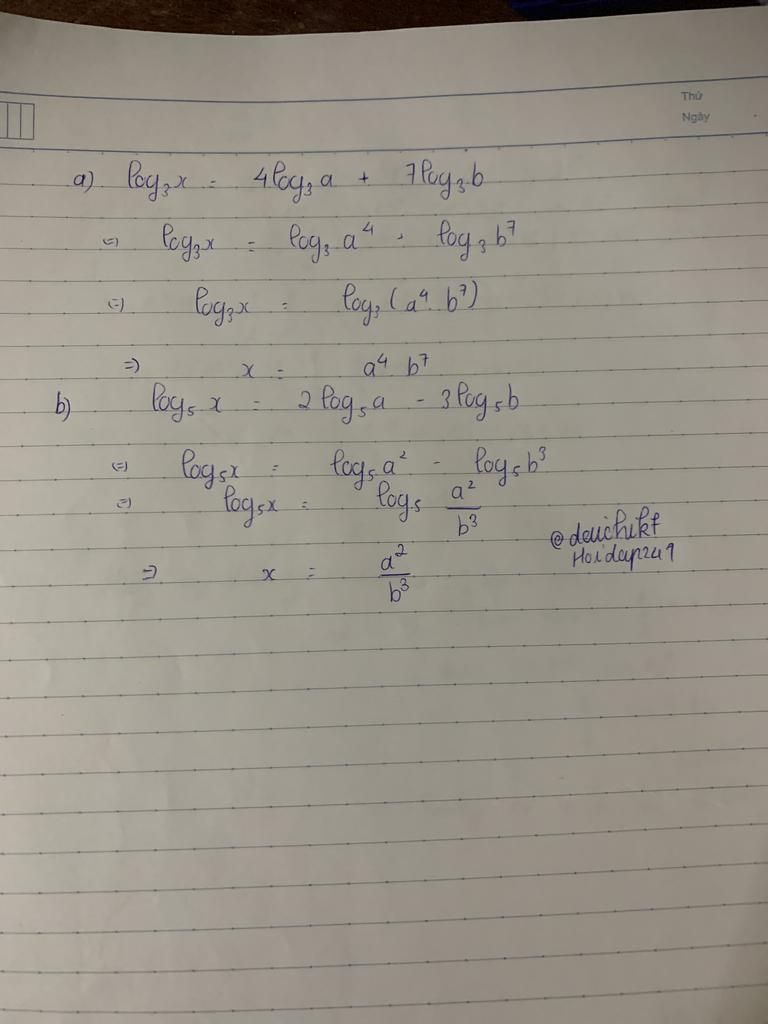 Thứ
Ngày
a) log₃x = 4log₃a + 7log₃b
(=) log₃x = log₃a⁴ . log₃b⁷
(=) log₃x = log₃(a⁴ b⁷)
=) x = a⁴ b⁷
b) log₅x = 2log₅a - 3log₅b
(=) log₅x = log₅a² - log₅b³
(=) log₅x = log₅ a²/b³
=) x = a²/b³